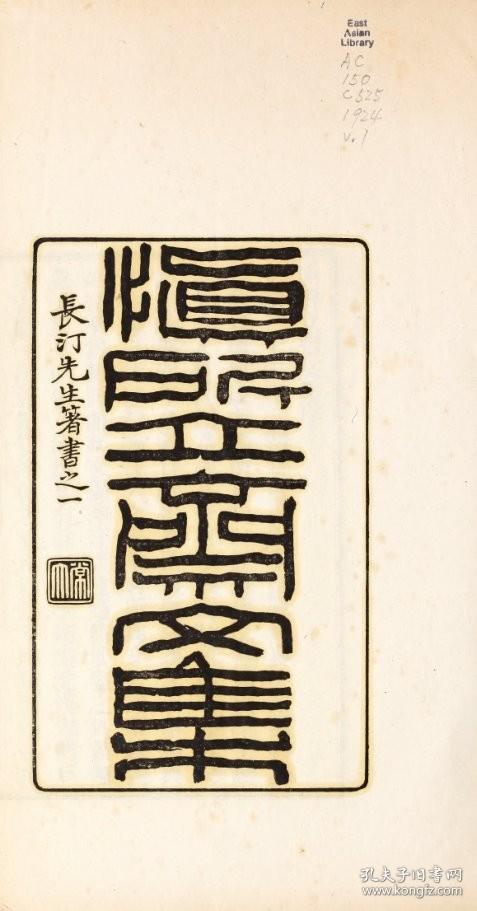 East
Asian
Library
AC
150
C525
1924
v.1
愼所立齋文集
長汀先生箸書之一
孔夫子旧书网
www.kongfz.com